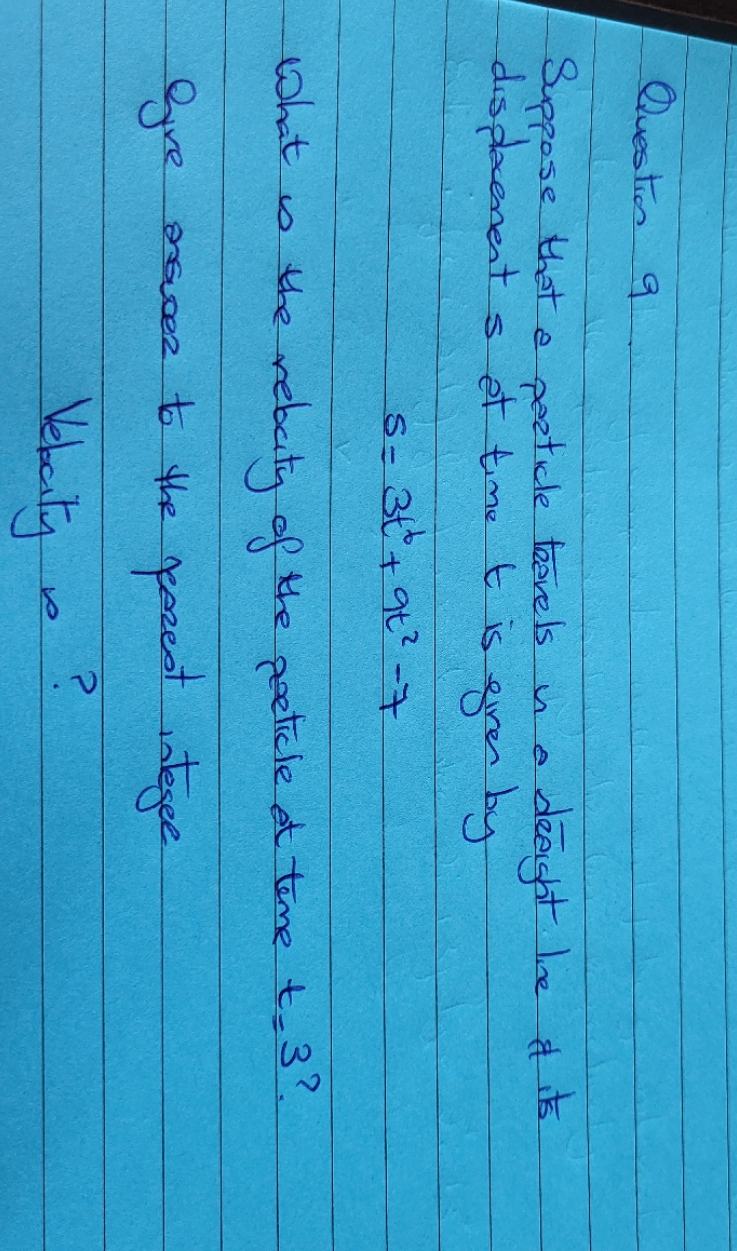 Question 9
Suppose that a particle travels in a straight line & its
displacement s at time t is given by
s = 3t⁶ + 9t² - 7
What is the velocity of the particle at time t = 3?
Give answer to the nearest integer
Velocity is ?